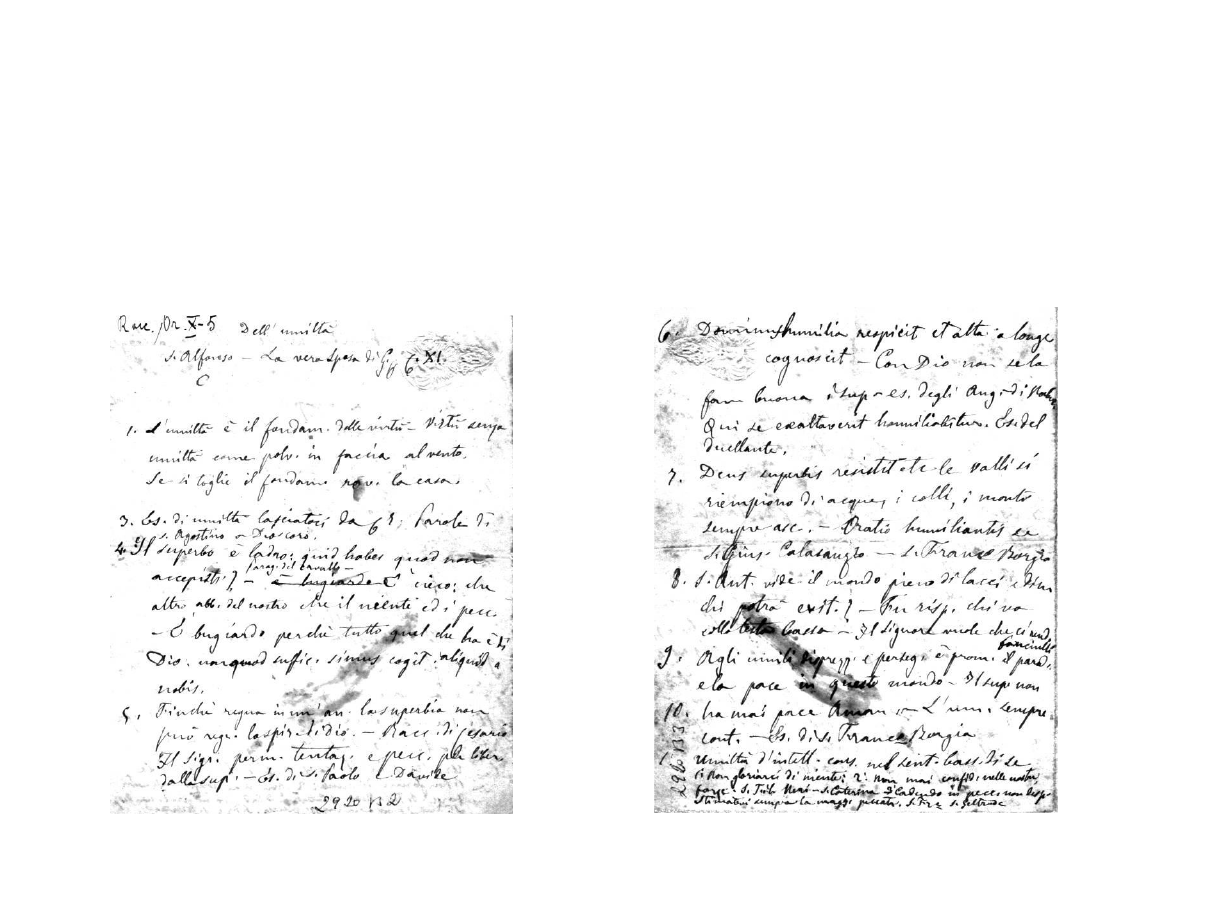 Racc. Or. X-5 Dell' umiltà
S. Alfonso – La vera Sposa di G. C. XI.
C
1. L'umiltà è il fondam. delle virtù – Virtù senza
umiltà come polv. in faccia al vento.
Se si toglie il fondam. rov. la casa.
3. Es. di umiltà lasciatoci da G. C., Parole di
s. Agostino a Dioscoro.
4. Il superbo è ladro: quid habes quod non
parag. del cavallo –
accepisti? – è bugiardo È cieco: che
altro abb. del nostro che il niente ed i pecc.
– È bugiardo perchè tutto quel che ha è di
Dio. non quod suffic. simus cogit. aliquid a
nobis.
5. Finchè regna in un' an. la superbia non
può regn. lo spir. di dio. – Racc. di Cesario
Il Sign. perm. tentaz. e pecc. per liber.
dalla sup. – Es. di S. Paolo e Davide
2920 B2
6. Dominus humilia respicit et alta a longe
cognoscit – Con Dio non se la
fan buona i sup – es. degli Ang. di
Qui se exaltaverit humiliabitur. Es. del
duellante.
7. Deus superbis resistit etc – le valli si
riempiono di acque, i colli, i monti
sempre asc. – Oratio humiliantis se
S. Gius. Calasanzio – S. Franc. Borgia
8. S. Ant. vide il mondo pieno di lacci e dim.
chi potrà evit.? – Fu risp. chi va
colla testa bassa – Il Signore vuole che ci rend.
fanciulli
9. Agli umili disprezz. e perseg. è prom. il parad.
e la pace in questo mondo – Il sup. non
10. ha mai pace Aman – L' um. sempre
cont. – Es. di S. Franc. Borgia
Umiltà d'intell. cons. nel sent. bass. di se
1. Non gloriarci di niente; 2. Non mai confid. nelle nostre
forze. S. Fil. Neri – S. Caterina 3. Cadendo in pecc. non disp.
Stimarci sempre la magg. peccatr. S. Fr. S. Geltrude
2920 B3